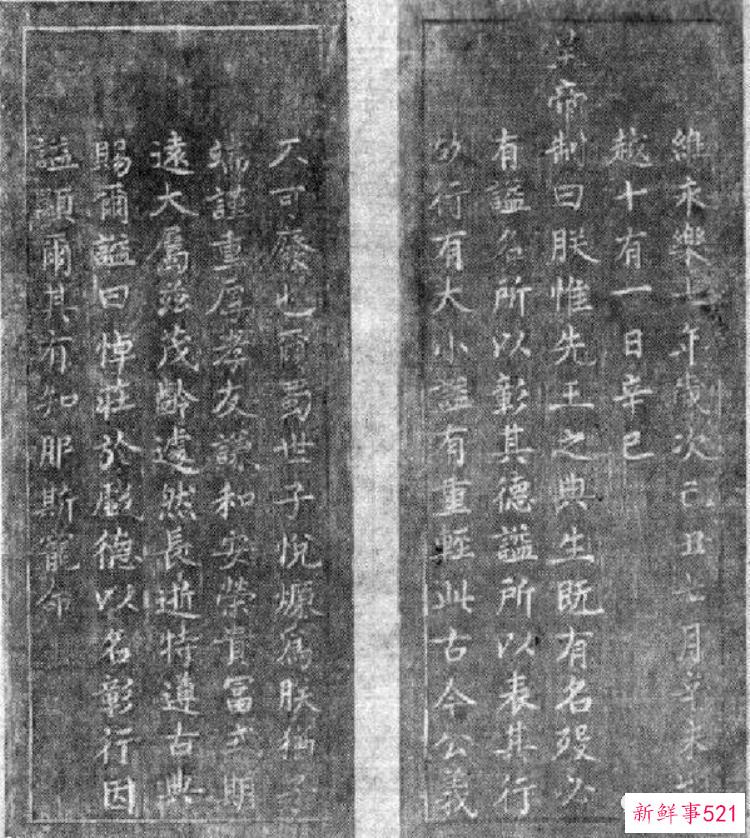 維永樂七年歲次己丑七月辛未朔
越十有一日辛巳
皇帝制曰朕惟先王之典生既有名歿必
有諡名所以彰其德諡所以表其行
故行有大小諡有重輕此古今公義
不可廢也爾蜀世子悅燫為朕猶子
端謹重厚孝友謙和安榮貴富式期
遠大屬茲茂齡遽然長逝特遵古典
賜爾諡曰悼莊於戲德以名彰行因
諡顯爾其有知服斯寵命
新鲜事521